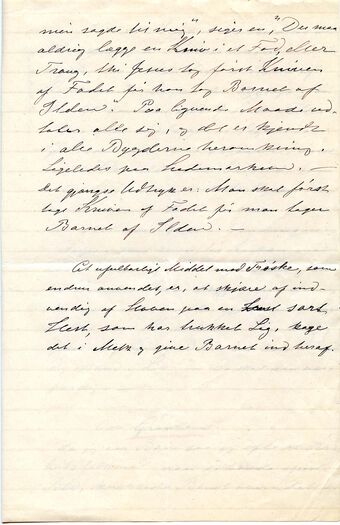 min sagde til mig", siges en, "Du maa
aldrig lægge en Kniv i et Fad, eller
Traug, thi Jesus tog først Kniven
af Fadet før han tog Barnet af
Ilden". Paa lignende Maade ud-
taler alle sig, og det er kjendt
i alle Bygderne heromkring.
Ligeledes paa Hedemarken. —
Det gjængse Udtryk er: Man skal først
tage Kniven af Fadet før man tager
Barnet af Ilden. —
Et ufeilbarligt Middel mod Trøske, som
endnu anvendes, er, at skjære af ind-
vendig af Hoven paa en sort
Hest, som har trukket Lig, koge
det i Melk og give Barnet ind heraf.